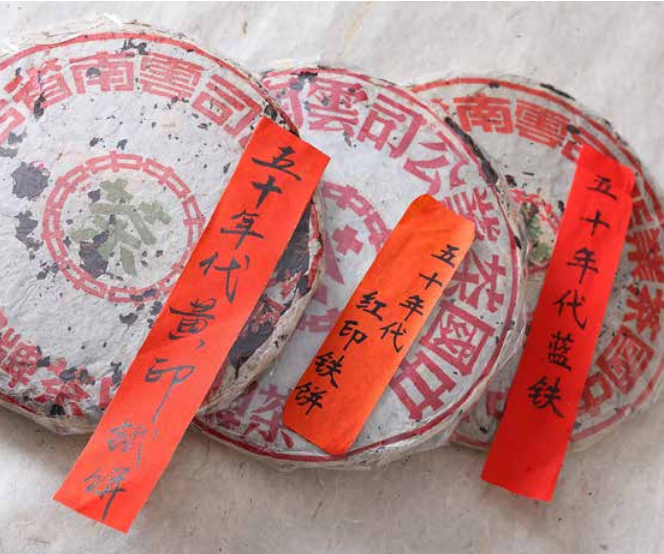 司雲南省
茶
牌茶
五十年代黄印铁饼
中國茶業公司雲南
圓茶
五十年代
红印铁饼
司雲南
業茶國中
五十年代蓝铁